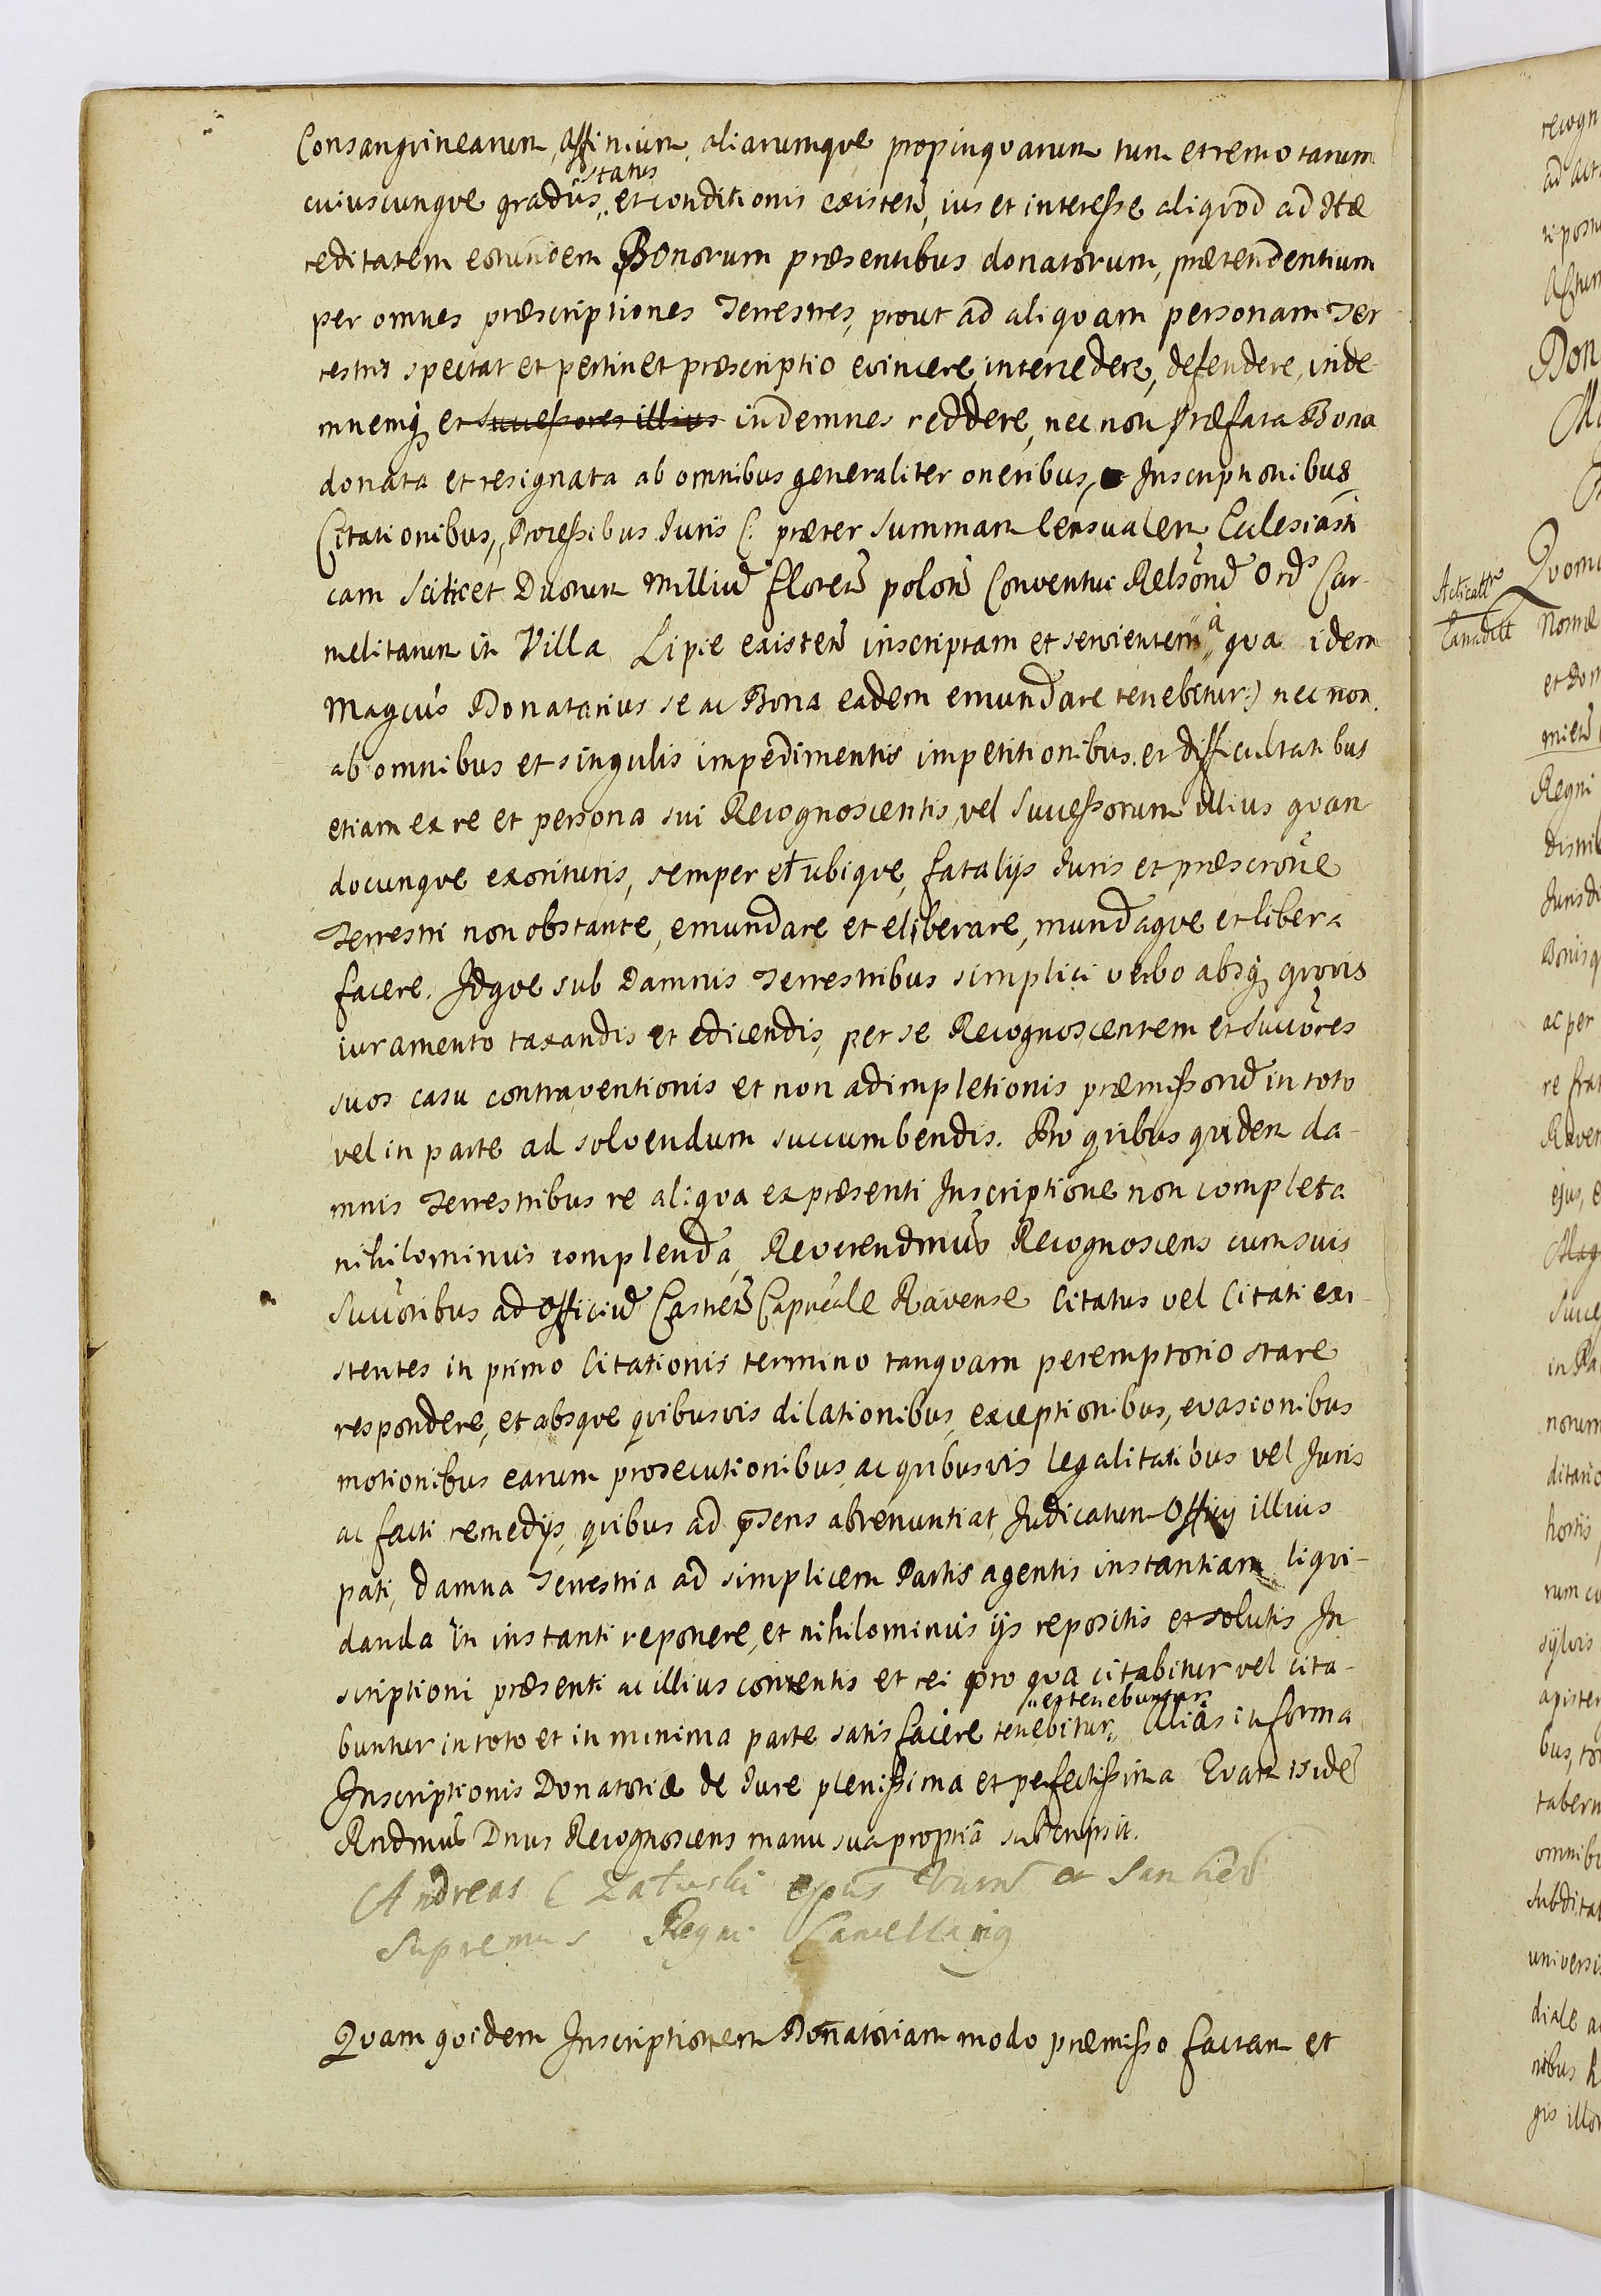 Consangvinearum, Affinium, aliarumqve propinqvarum tum et remotarum
status
cuiuscunqve gradus, et conditionis existeñ, ius et interesse aliqvod ad Hæ
reditatem eorundem Bonorum præsentibus donatorum, prætendentium
per omnes præscriptiones Terrestres, prout ad aliqvam personam Ter
restris spectat et pertinet præscriptio evincere, intercedere, defendere, inde
mnemq; et successores illius indemnes reddere, nec non præfata Bona
donata et resignata ab omnibus generaliter oneribus, Inscriptionibus
Citationibus, Processibus Juris (: præter summam Censualem Ecclesiasti
cam scilicet Duorum Milliuɱ floreñ poloñ Conventui Ord̃s Car-
melitarum in Villa Lipie existeñ inscriptam et servientem, à qva idem
Magcus Donatarius se ac Bona eadem emundare tenebitur:) nec non
ab omnibus et singulis impedimentis impetitionibus et difficultatibus
etiam ex re et persona sui Recognoscentis, vel Successorum illius qvan
docunqve exorituris, semper et ubiqve, fatalijs Juris et præscrõne
Terrestri non obstante, emundare et eliberare, mundaqve et libera
facere. Idqve sub Damnis Terrestribus simplici verbo absq; qvovis
iuramento taxandis et edicendis, per se Recognoscentem et Succores
suos casu contraventionis et non adimpletionis præmissorũ in toto
vel in parte ad solvendum succumbendis. Pro qvibus qvidem da-
mnis Terrestribus re aliqva ex præsenti Inscriptione non completa
nihilominus complenda, Reverendmus Recognoscens cum suis
Succoribus ad Officiũ Castreñ Capneale Ravense Citatus vel Citati exi-
stentes in primo Citationis termino tanqvam peremptorio stare
respondere, et absqve qvibusvis dilationibus, exceptionibus, evasionibus
motionibus earum prosecutionibus ac qvibusvis legalitatibus vel Juris
ac facti remedijs, qvibus ad p̃sens abrenuntiat Judicatum Officij illius
pati, damna Terrestria ad simplicem Partis agentis instantiam liqvi-
danda in instanti reponere, et nihilominus ijs repositis et solutis In
scriptioni præsenti ac illius contentis et rei pro qva citabitur vel cita-
et tenebuntur
buntur in toto et in minima parte satisfacere tenebitur, Alias in forma
Inscriptionis Donatoriæ de Jure plenissima et perfectissima Qvam idẽ
Rndmus Dnus Recognoscens manu sua propria subscripsit.
Andreas C Załuski epus et
Supremus Regni Cancellarius
Qvam qvidem Inscriptionem Donatoriam modo præmisso factam et
Don
Qvom
Regni
Jurisdi
ac per
ejus, e
hortis
sylvis
bus, to
tabern
omnib
subdita
universi
diale a
nibus h
gis illo